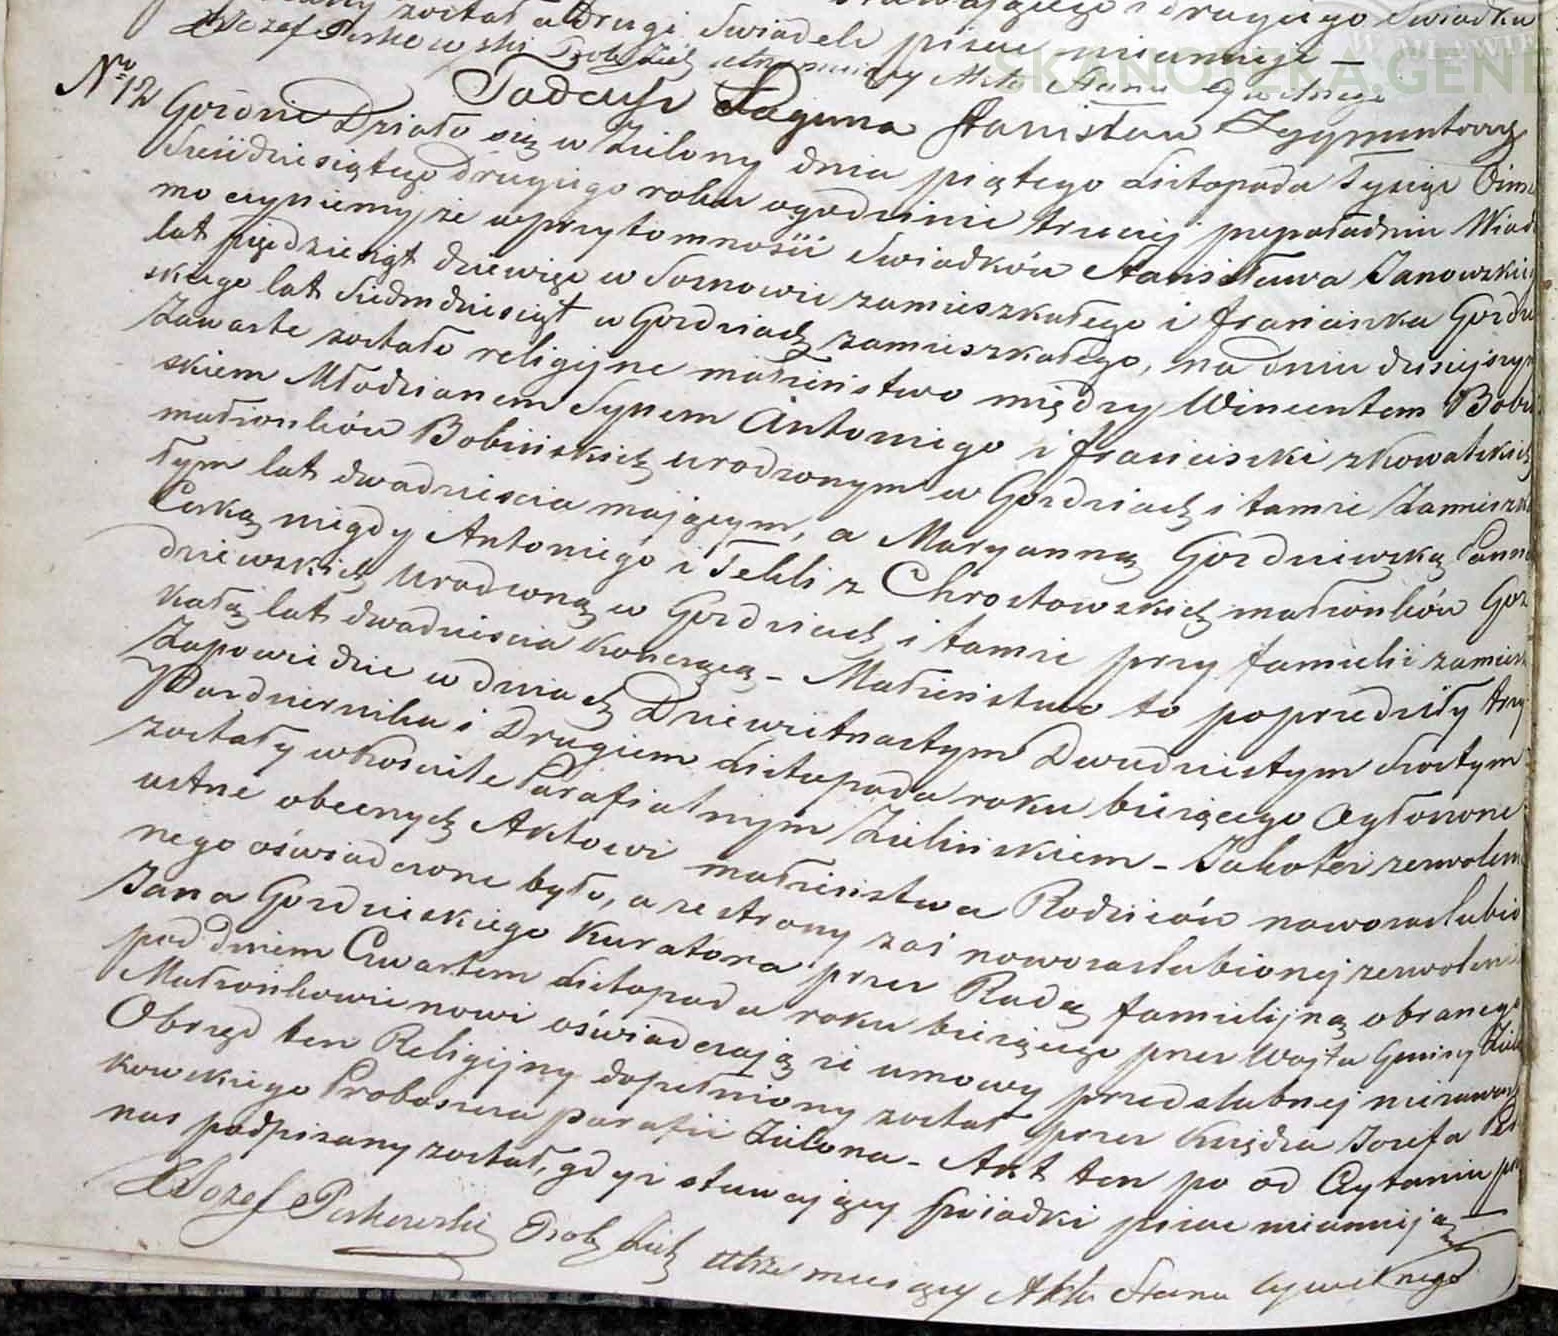 został a Drugi Swiadek pisac nieumieje —
X Józef Piskowski Prob: Ziel: utrzymuiący Akta Stanu Cywilnego
SKANOTEKA.GENE
Tadeusz Łaguna Stanisław Zygmuntowicz
Nº 12 Gozdzie Działo się w Zielony dnia piątego Listopada Tysiąc Ośmse
Sześdziesiątego Drugiego roku ogodzinie trzeciej popołudniu Wiad
mo czyniemy że wprzytomności Swiadków Stanisława Janowskie
lat pięćdziesiąt dziewięc w Sosnowie zamieszkałego i franciszka Gozdz
skiego lat Siedmdziesiąt w Gozdziach zamieszkałego, na dniu dzisiejszym
Zawarte zostało religijne małżeństwo między Wincentem Bobi
skiem Młodzianem Synem Antoniego i franciszki zkowalskich
małżonków Bobińskich urodzonym w Gozdziach i tamże Zamieszk
łym lat dwadzieścia mającym, a Maryanną Gozdziewską Panną
Córką niegdy Antoniego i Tekli z Chrostowskich małżonków Goz
dziewskich urodzoną w Gozdziach i tamże przy familii zamiesz
kałą lat dwadzieścia kończącą - Małżeństwo to poprzedziły trzy
Zapowiedzie w dniach Dziewiętnastym Dwudziestym Szostym
Pazdziernika i Drugiem Listopada roku bieżącego Ogłoszone
zostały wkościele Parafialnym Zielińskiem - Jakoteż zezwolen
ustne obecnych Aktowi małżeństwa Rodziców nowozaslubio
nego oświadczone było, a ze strony zaś nowozaslubionej zezwoleni
Jana Gozdzieskiego Kuratora przez Radę familijną obranego
pod dniem Czwartem Listopada roku bieżącego przez Wojta Gminy Ziel
Małżonkowie nowi oświadczają że umowy przedslubnej niezawarli
Obrzęd ten Religijny dopełniony został przez Księdza Jozefa Pis
kowskiego Proboszcza parafii Zielona - Akt ten po od Czytaniu prz
nas podpisany został, gdyż stawający Swiadki pisac nieumieją —
X Jozef Piskowski Prob: Ziel: utrzymuiący Akta Stanu Cywilnego